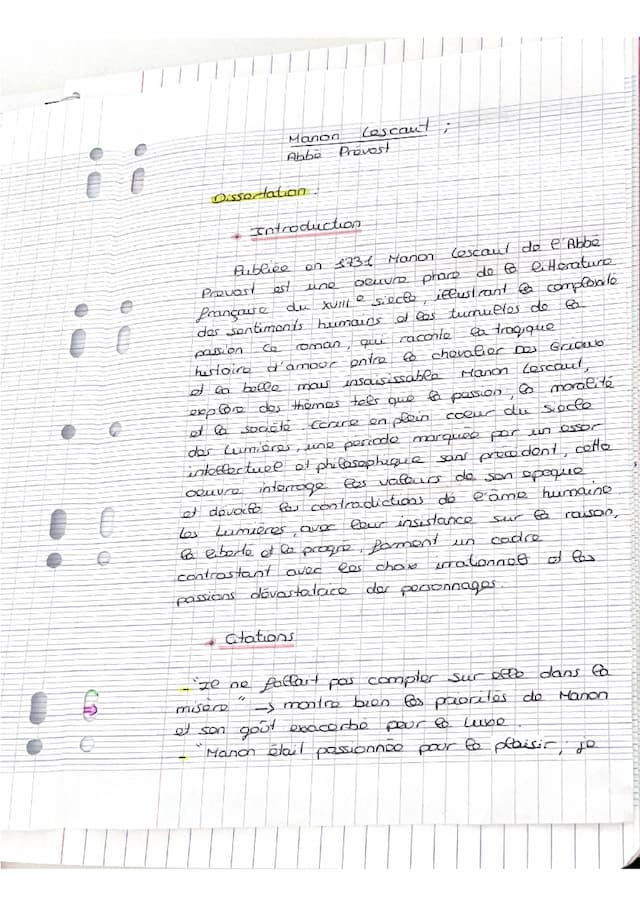 Manon Lescaut ;
Abbé Prévost
Dissertation.
Introduction
Publiée en 1731 Manon Lescaut de l'Abbé
Prevost est une oeuvre phare de la littérature
française du XVIII e siècle, illustrant la complexité
des sentiments humains et les tumultes de la
passion Ce roman, qui raconte la tragique
histoire d'amour entre le chevalier Des Grieux
et la belle mais insaisissable Manon Lescaut,
explore des thèmes tels que la passion, la moralité
et la société. Ecrire en plein coeur du siècle
des Lumières, une période marquée par un essor
intellectuel et philosophique sans précédent, cette
oeuvre interroge les valeurs de son epoque
et dévoile les contradictions de l'âme humaine.
Les Lumières, avec leur insistance sur la raison,
la liberte et le progre, forment un cadre
contrastant avec les choix irrationnels et les
passions dévastatrice des personnages.
Citations
- "Il ne fallait pas compter sur elle dans la
misère" → montre bien les priorités de Manon
et son goût exacerbé pour le luxe.
- "Manon était passionnée pour le plaisir ; je